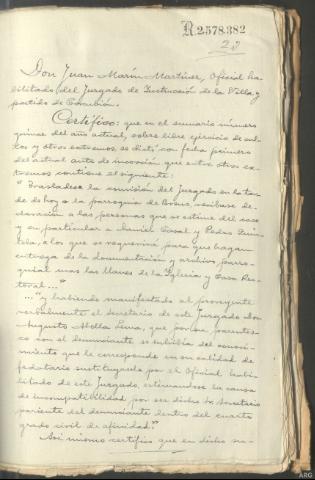 R 2.578.382
Don Juan Marín Martínez, Oficial ha-
bilitado del Juzgado de Instrucción de la Villa y
partido de
Certifico: que en el sumario número
quince del año actual, sobre libre ejercicio de cul-
tos y otros extremos, se dictó con fecha primero
del actual auto de incoación que entre otros ex-
tremos contiene el siguiente:
"Trasládese la comisión del Juzgado en la tar-
de de hoy a la parroquia de recíbase de-
claración a las personas que se estime del caso
y en particular a Javier Casal y Pedro Quin-
tela, a los que se requerirá para que hagan
entrega de la documentación y archivo parro-
quial mas las llaves de la Iglesia y Casa Rec-
toral..."
..."y habiendo manifestado al proveyente
verbalmente el Secretario de este Juzgado don
Augusto Abella que por su parentes-
co con el denunciante se inhibía del conoci-
miento que le corresponde en su calidad de
fedatario sustitúyasele por el Oficial habi-
litado de este Juzgado, estimándose la causa
de incompatibilidad por ser dicho Sr. Secretario
pariente del denunciante dentro del cuarto
grado civil de afinidad."
Así mismo certifico que en dicho su-
ARG